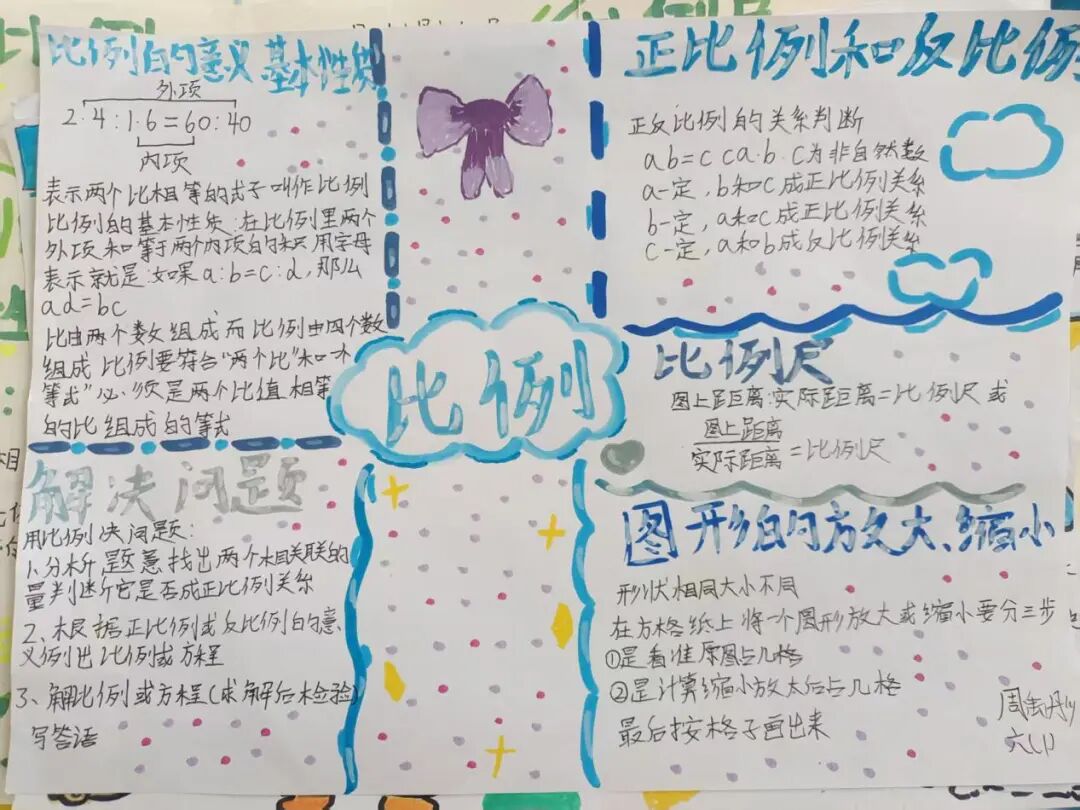 比例的意义 基本性质
外项
2:4:1·6=60:40
内项
表示两个比相等的式子叫作比例
比例的基本性质:在比例里两个
外项和等于两个内项的积 用字母
表示就是:如果a:b=c:d,那么
ad=bc
比由两个数组成而比例由四个数
组成 比例要符合“两个比”和“
等式”必须是两个比值相等
的比组成的等式
解决问题
用比例决问题:
1、分析题意找出两个相关联的
量判断它是否成正比例关系
2、根据正比例或反比例的意
义例出比例或方程
3、解比例或方程(求解后检验)
写答语
比例
正比例和反比例
正反比例的关系判断
ab=c ca.b.c为非自然数
a一定,b和c成正比例关系
b一定,a和c成正比例关系
c一定,a和b成反比例关系
比例尺
图上距离:实际距离=比例尺或
图上距离
实际距离=比例尺
图形的方文大、缩小
形状相同大小不同
在方格纸上将一个图形放大或缩小要分三步
①是看准原图占几格
②是计算缩小放大后占几格
最后按格子画出来
六(1)